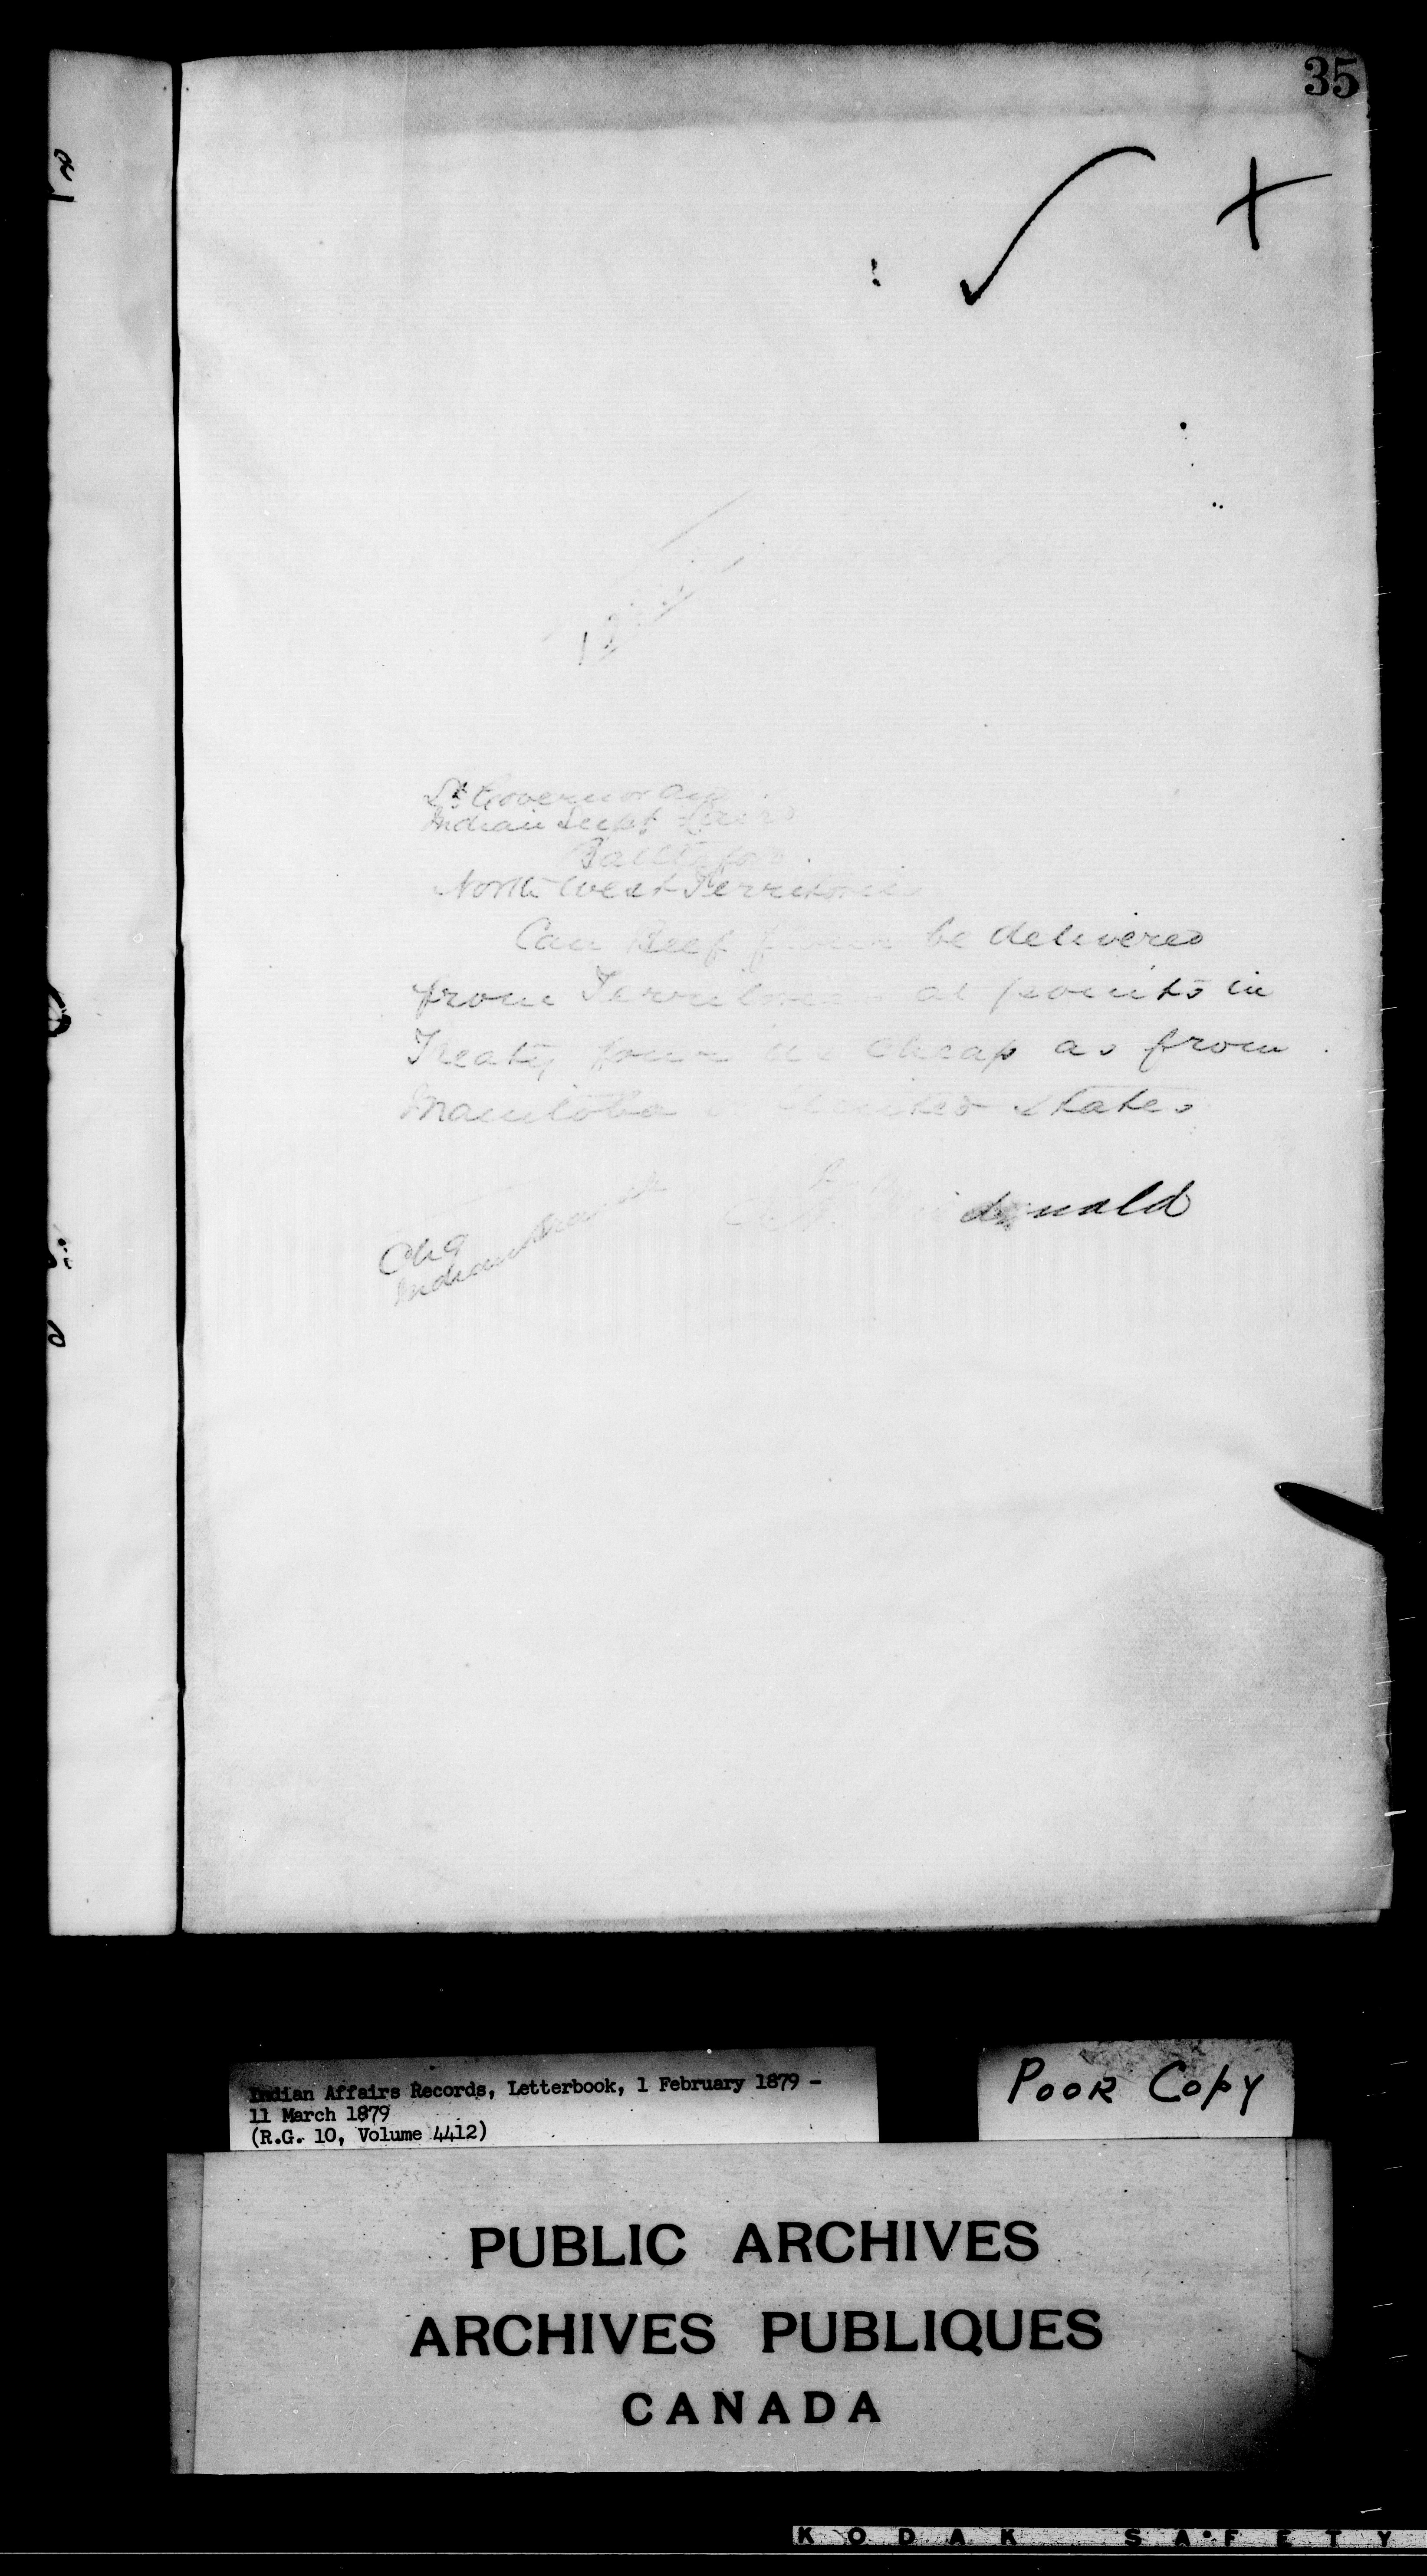 35
Lt Governor and
Indian Supt Laird
Battleford
North West Territories
Can Beef flour be delivered
from Territories at points in
Treaty four as cheap as from
Manitoba or United States
donald
Chg
Indian Branch
Indian Affairs Records, Letterbook, 1 February 1879 -
11 March 1879
(R.G. 10, Volume 4412)
POOR COPY
PUBLIC ARCHIVES
ARCHIVES PUBLIQUES
CANADA
KODAK SAFETY